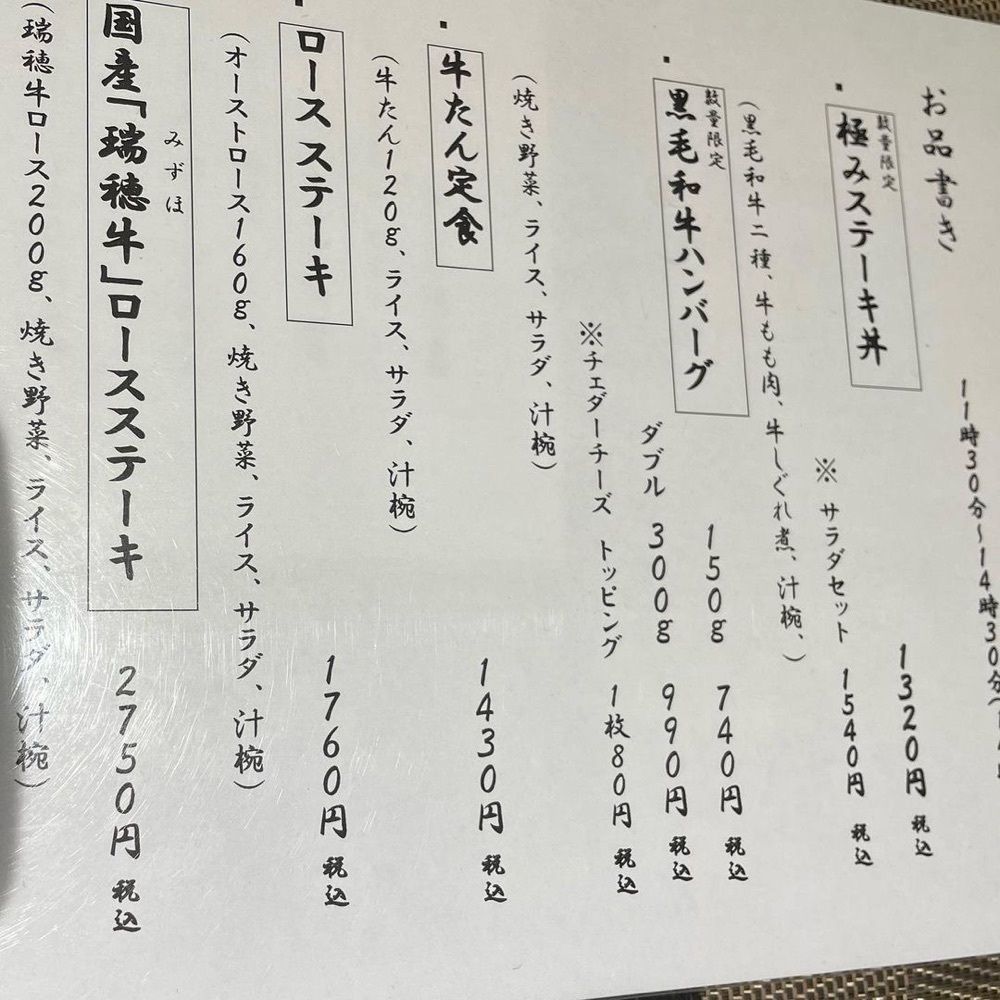 お品書き
11時30分~14時30分(
極みステーキ丼
数量限定
1320円 税込
※ サラダセット 1540円 税込
(黒毛和牛二種、牛もも肉、牛しぐれ煮、汁椀、)
黒毛和牛ハンバーグ
数量限定
150g 740円 税込
ダブル 300g 990円 税込
※チェダーチーズ トッピング 1枚80円 税込
(焼き野菜、ライス、サラダ、汁椀)
牛たん定食
1430円 税込
(牛たん120g、ライス、サラダ、汁椀)
ロースステーキ
1760円 税込
(オーストロース160g、焼き野菜、ライス、サラダ、汁椀)
国産「瑞穂牛」ロースステーキ
みずほ
2750円 税込
(瑞穂牛ロース200g、焼き野菜、ライス、サラダ、汁椀)